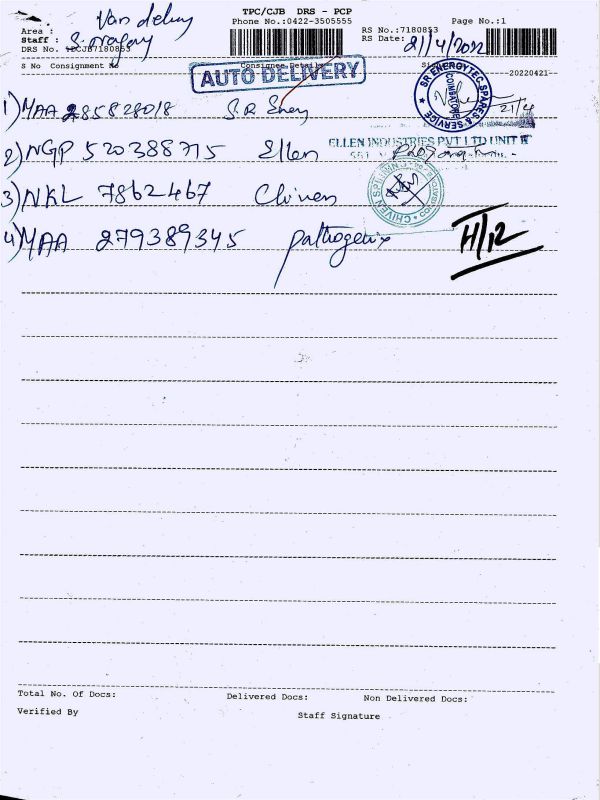 Van delivy
TPC/CJB DRS - PCP
Phone No.:0422-3505555
Page No.:1
Area :
Staff :
DRS No. :CJB7180853
RS No.:7180853
RS Date: 21/4/2022
S No Consignment No Consignee Details
--20220421--
AUTO DELIVERY
SR ENERGYTEC SPARES & SERVICE
COIMBATORE
21/4
1) MAA 285828018 S.R Energy
ELLEN INDUSTRIES PVT LTD UNIT II
2) NGP 520388715 Ellen
3) NKL 7862467 Chiven
CHIVEN
4) MAA 279389345 pathogenix
H/12
Total No. Of Docs: Delivered Docs: Non Delivered Docs:
Verified By Staff Signature